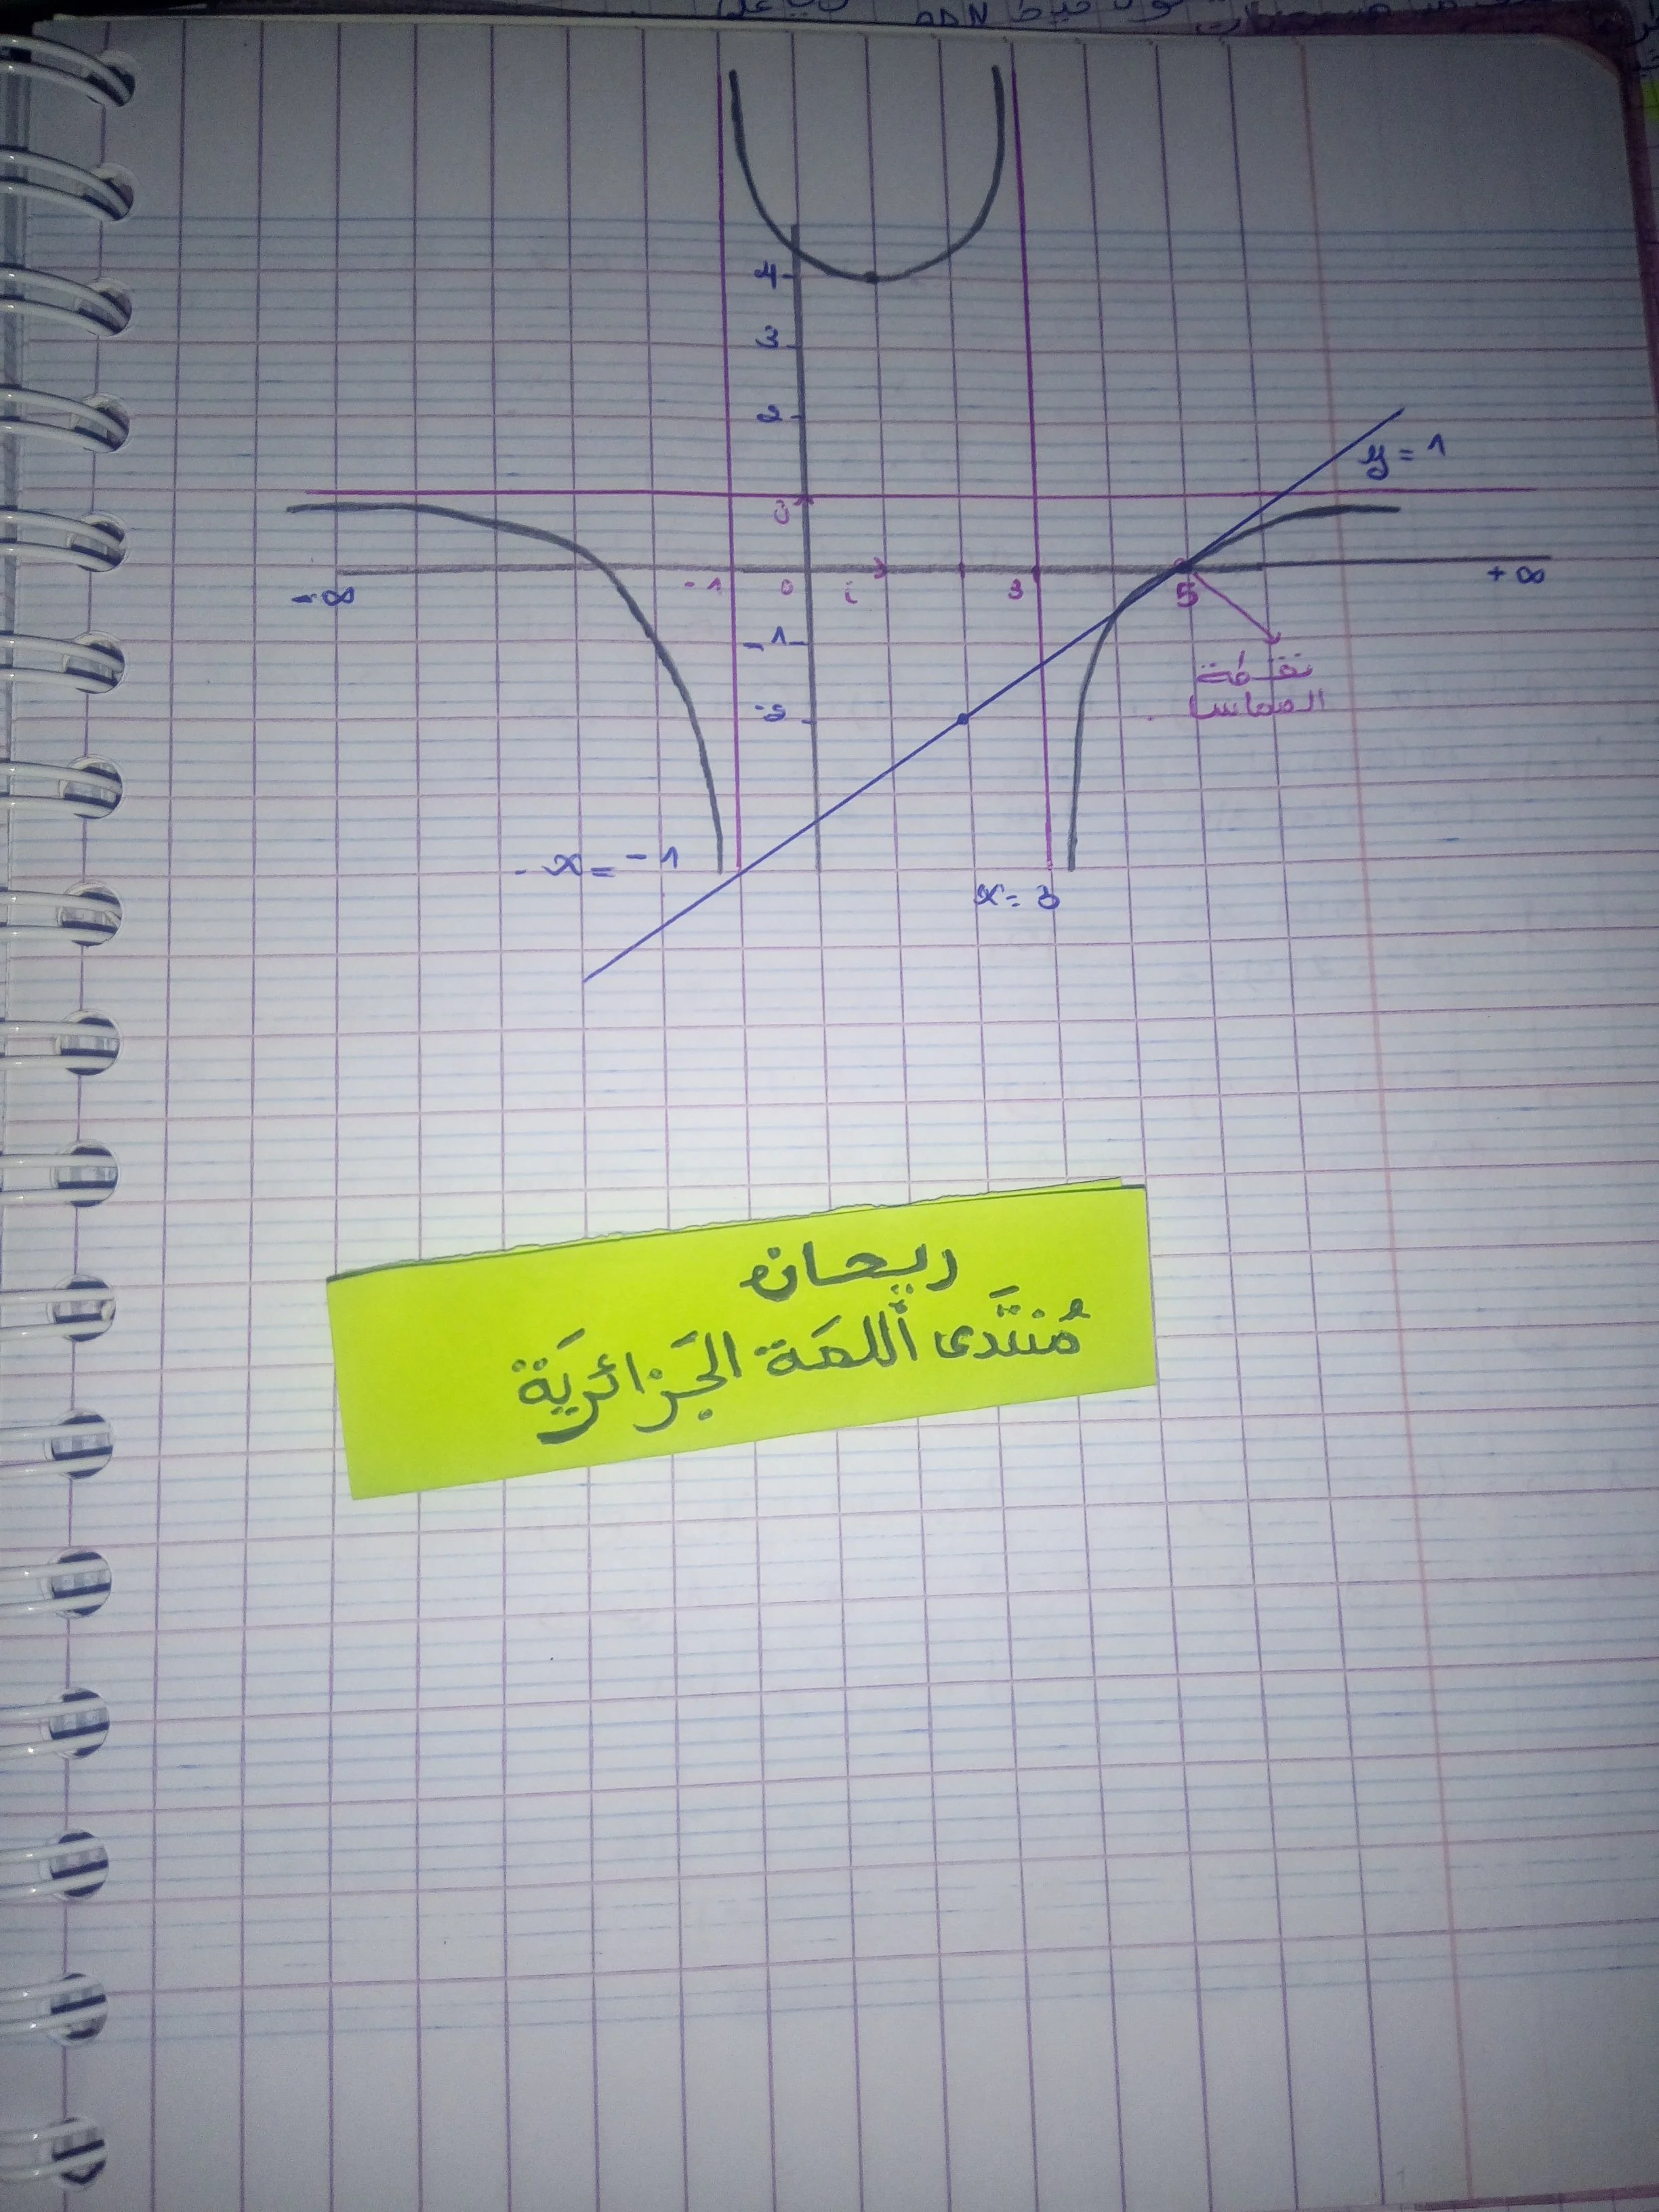 ADN
4
3
2
y = 1
j
-∞
-1
0
i
3
5
+∞
-1
نقطة
المماس
-2
- x = -1
x = 3
ريحان
مُنتَدى اللمَة الجَزائريَة